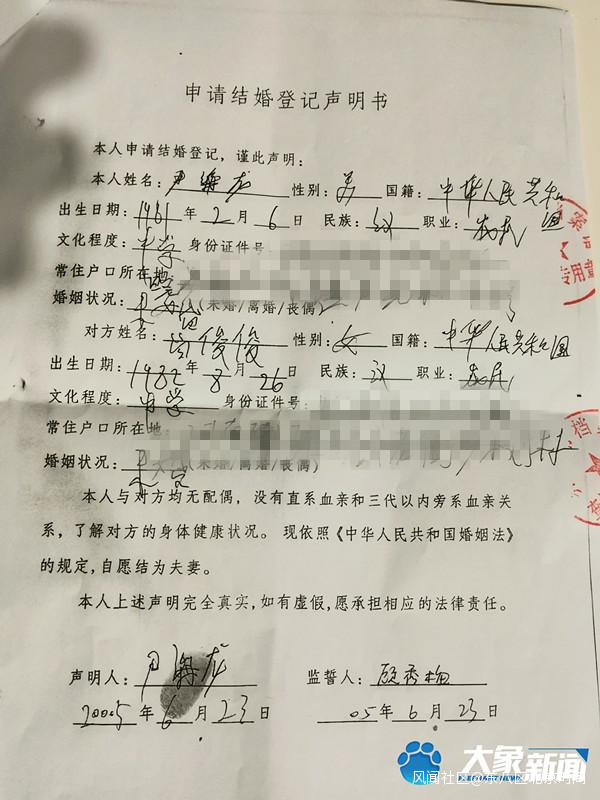 申请结婚登记声明书
本人申请结婚登记，谨此声明：
本人姓名：尹 龙 性别：男 国籍：中华人民共和国
出生日期：1961年2月6日 民族：汉 职业：农民
文化程度：中学 身份证件号
常住户口所在地
婚姻状况：（未婚/离婚/丧偶）
对方姓名：俊俊 性别：女 国籍：中华人民共和国
出生日期：1982年8月26日 民族：汉 职业：农民
文化程度：中学 身份证件号：
常住户口所在地：村
婚姻状况：（未婚/离婚/丧偶）
本人与对方均无配偶，没有直系血亲和三代以内旁系血亲关
系，了解对方的身体健康状况。现依照《中华人民共和国婚姻法》
的规定，自愿结为夫妻。
本人上述声明完全真实，如有虚假，愿承担相应的法律责任。
声明人：尹 龙 监誓人：顾秀梅
2005年6月23日 05年6月23日
专用章
档
大象新闻